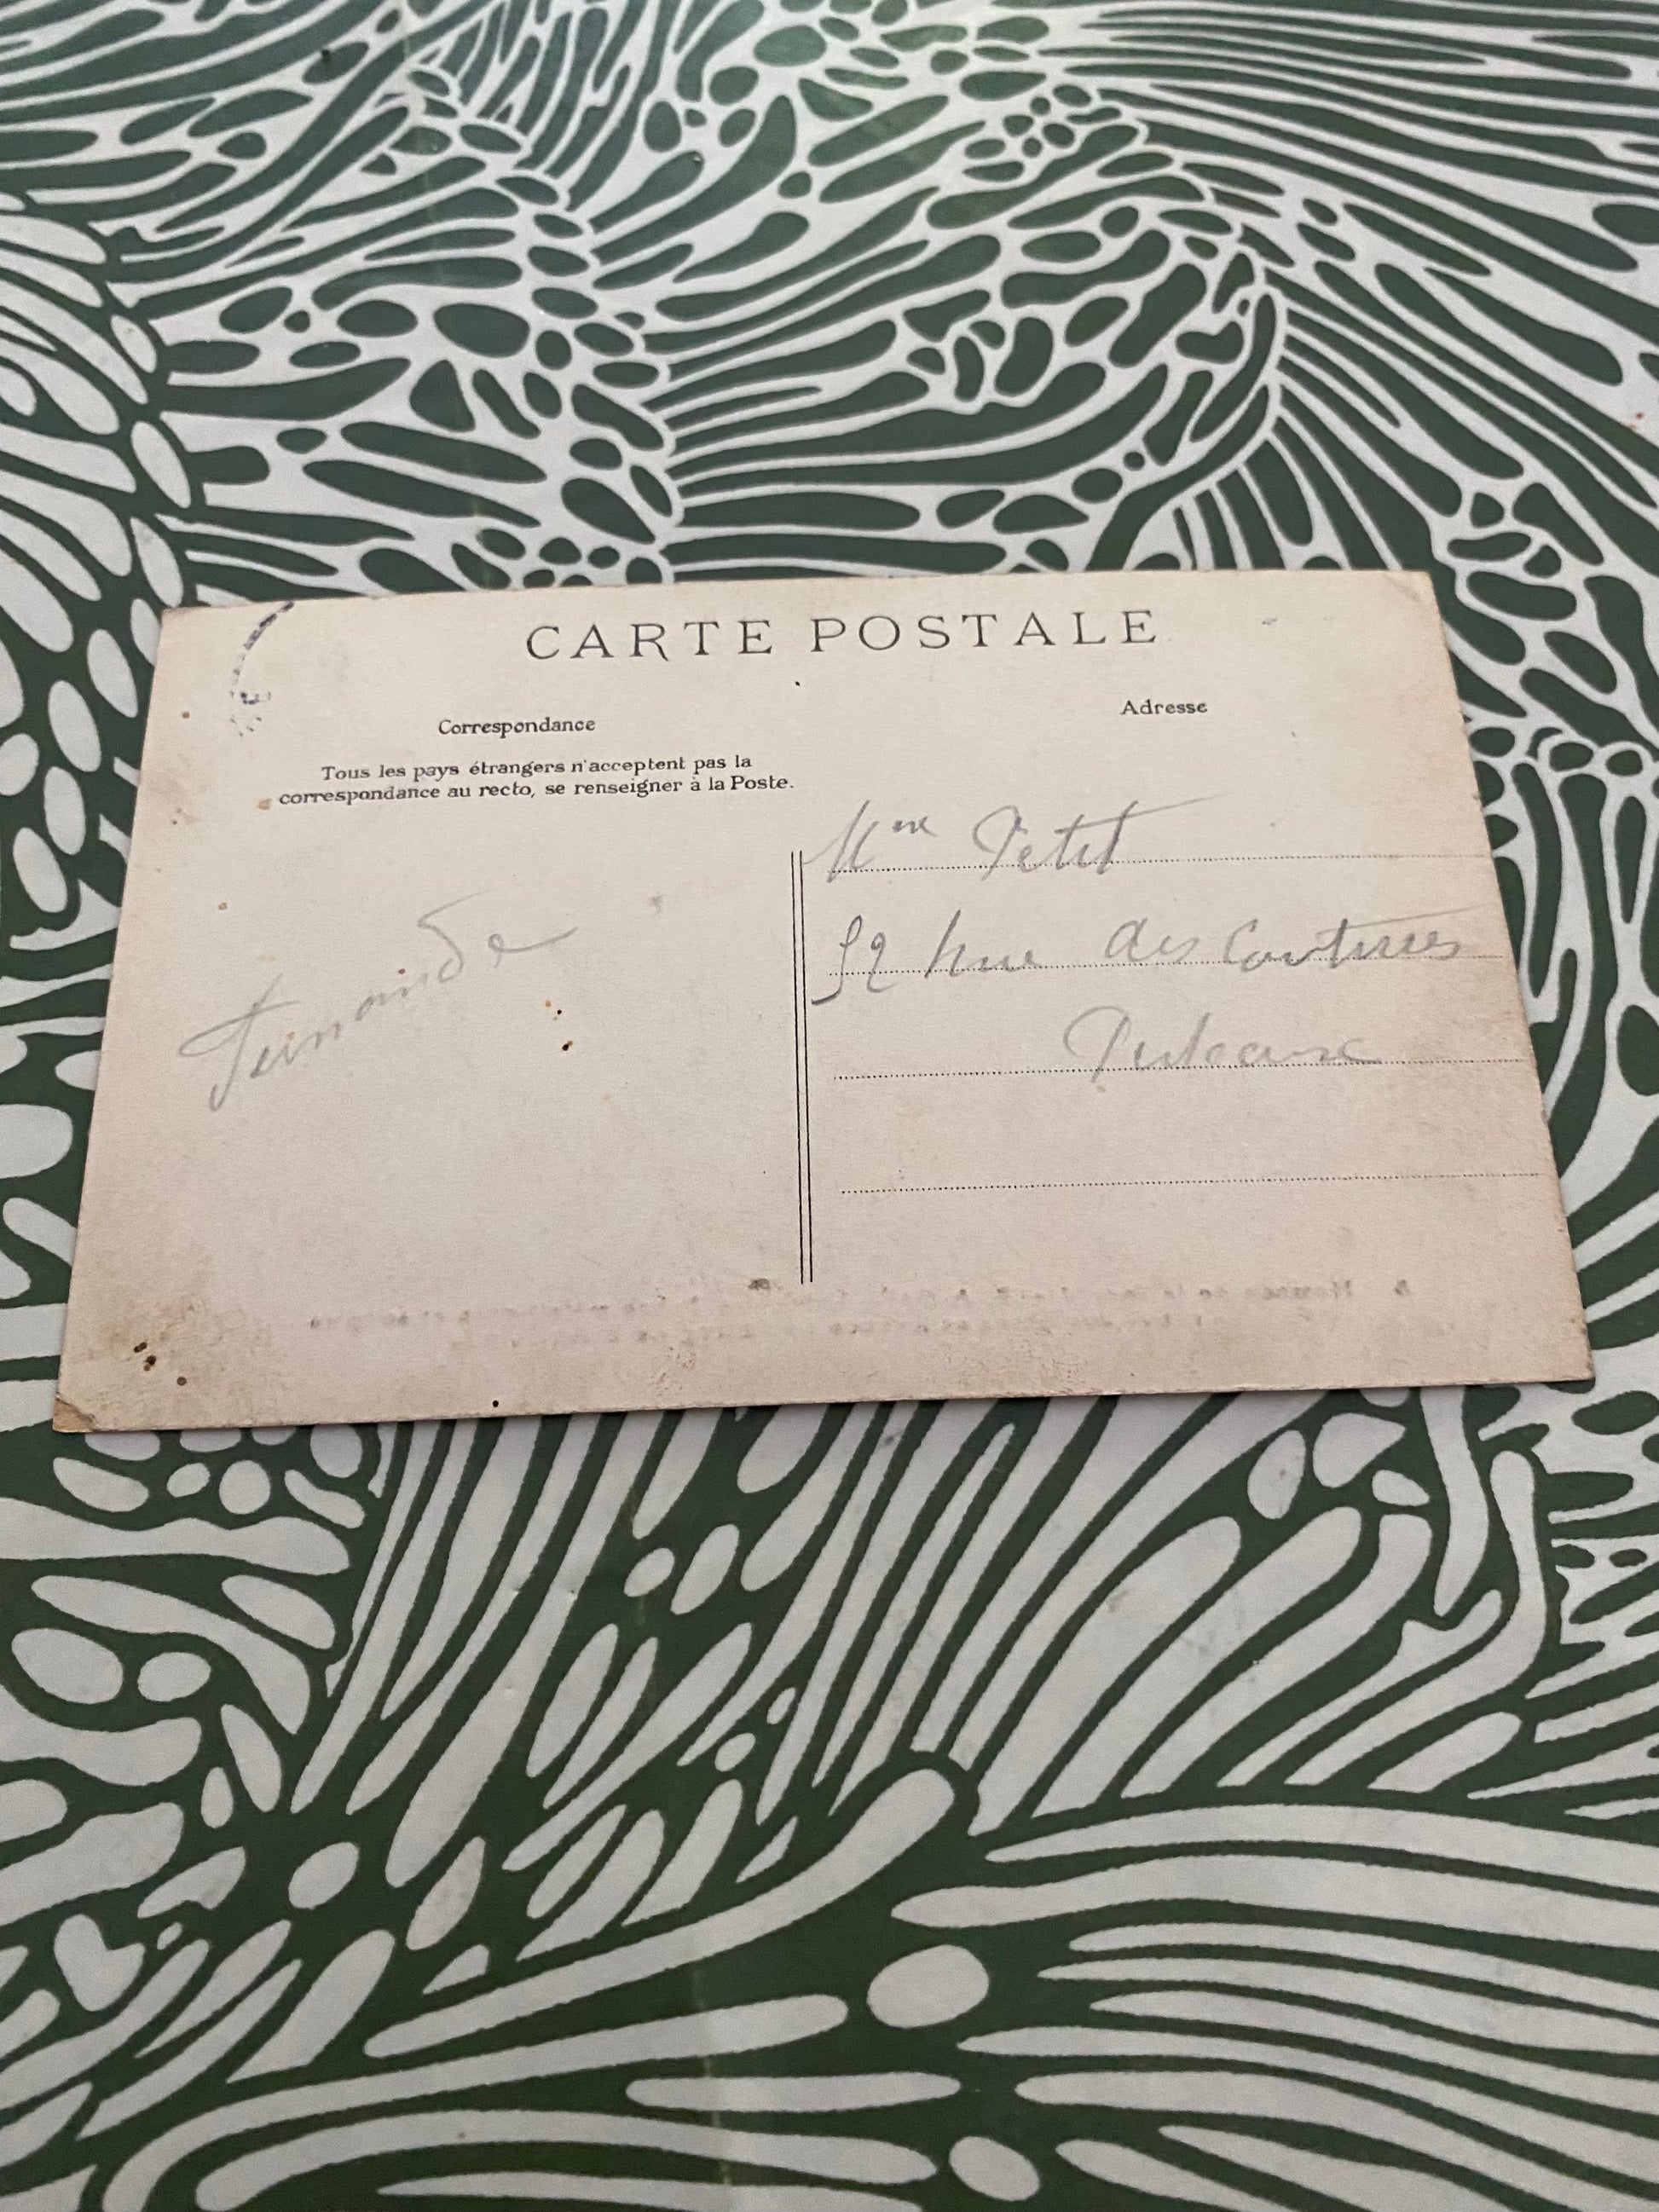 CARTE POSTALE
Correspondance
Adresse
Tous les pays étrangers n'acceptent pas la
correspondance au recto, se renseigner à la Poste.
Mme Petit
52 Rue des Coutures
Puteaux
Fernande